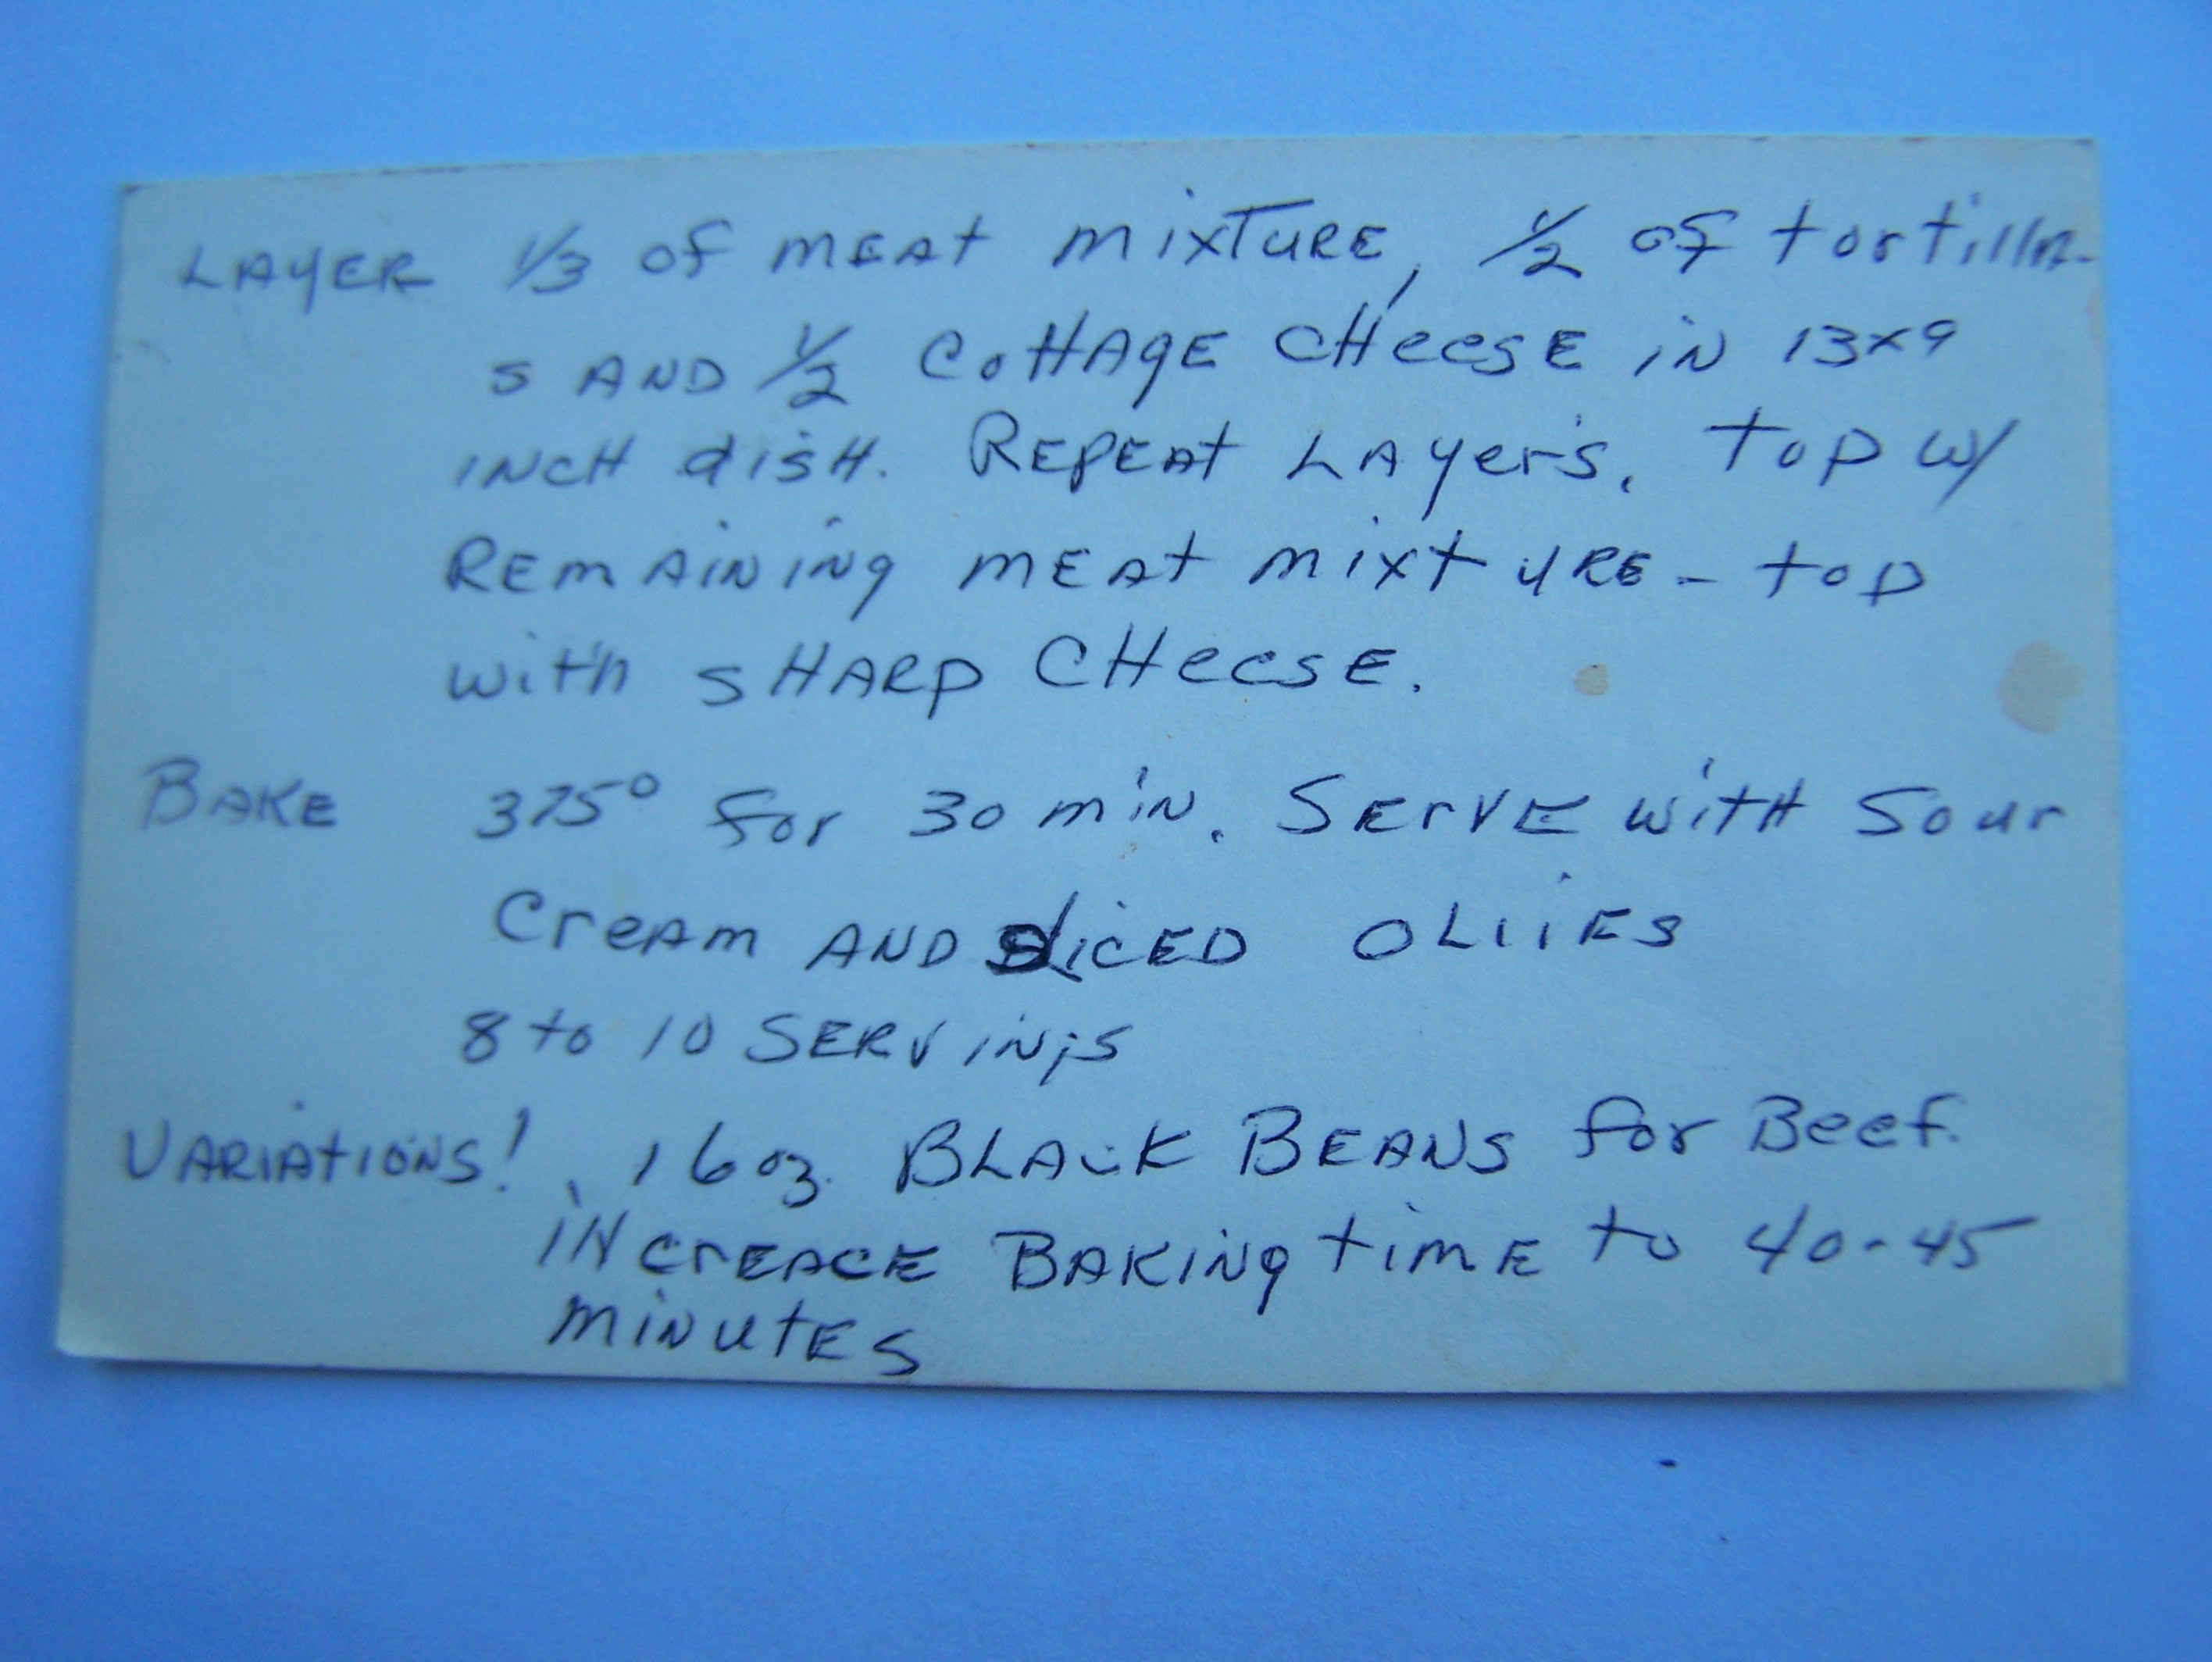 LAYER 1/3 of MEAt MixTURE, 1/2 of tortilla-
s AND 1/2 CottAgE CHeesE iN 13x9
iNCH disH. REPEAt LAyers. Top w/
REmAiNiNg MEAt Mixt URE - top
with sHARp CHeesE.
BAKE 375° for 30 miN. SErVE witH Sour
CreAm AND sliCED OLiiES
8 to 10 SERViNgS
VARiAtioNS! 16 oz. BLAcK BEANS for Beef.
iNCrEACE BAKiNg timE to 40-45
MiNUtES